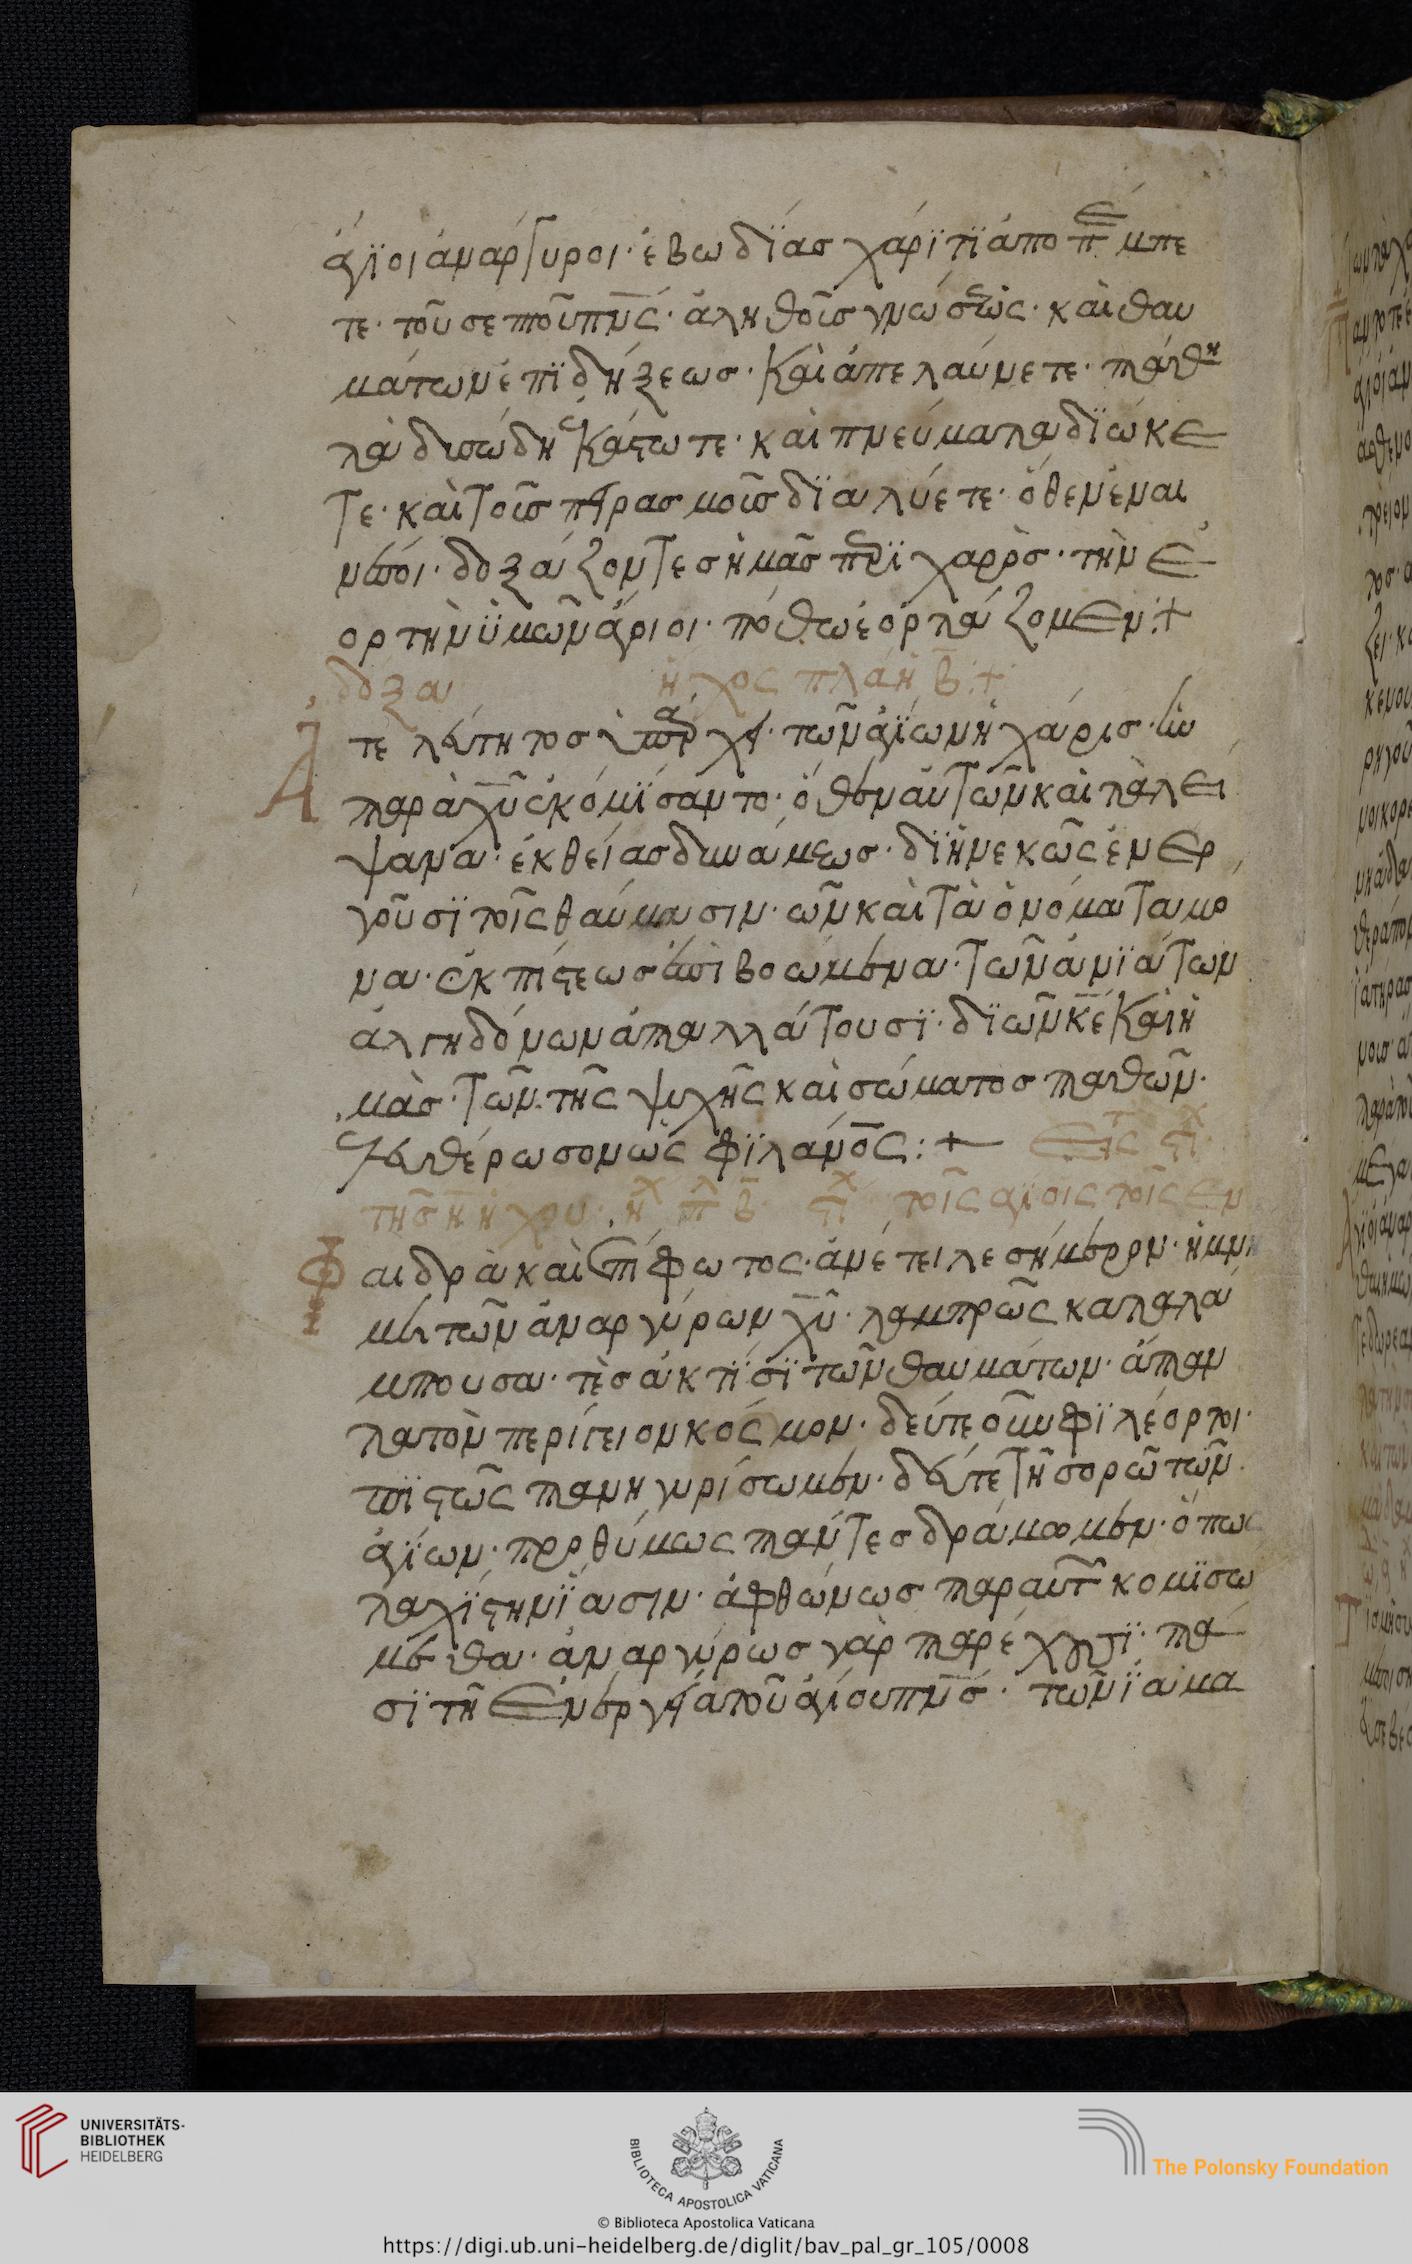 ἅγϊοι ἀναρΓυροι· ἐβωδΐας χάρϊτϊ ἀποπέμπε
τε· τοῦ σεπτοῦ πν̅ς· ἀληθοῖς γνώσεως· καὶ θαυ
μάτων ἐπϊδήξεως· Καὶ ἀπελαύνετε· πάθη
τὰ δισώδη Κάστωτε· καὶ πνεύματα δϊώκε
τε· καὶ τοῖς πειρασμοῖς δϊαλύετε· ὅθεν ἐναι
νῶποι· δοξάζοντες ἡμᾶς περϊχαρὸς· τὴν ε
ορτὴν ὑμῶν ἅγιοι· πόθω ἑορτάζομεν:+
δόξα ἦχος πλάη β:+
Ἀτελεύτητος ὑπάρχει· τῶν ἁγΐων ἡ χάρις· ἣν
παρὰ χ̅υ̅ ἐκόμϊσαντο· ὅθεν αὐτῶν καὶ τὰ λει
ψανα· ἐκ θείας δυνάμεως· δϊηνεκῶς ἐνερ
γοῦσϊ τοῖς θαύμασιν· ὧν καὶ τὰ ὀνόματα μο
να· ἐκ πίστεως ἐπϊβοώμενα· τῶν ἀνϊάτων
ἀλγηδόνων ἀπαλλάτουσϊ· δϊ ὧν κ̅ε̅ Καὶ ἡ
μὰς· τῶν τῆς ψυχῆς καὶ σώματος παθῶν·
ἐλευθέρωσον ὡς φϊλάνο̅ς:+ Ετς στχ
τῆς η̅ ἤχου· ηχ πλ β̅· στχ τοῖς αγϊοῖς τοῖς εν
Φαιδρὰ καὶ ἐπϊφωτος· ἀνέτειλε σήμερον· ἡ μνή
μει τῶν ἀναργύρων χ̅υ̅· λαμπρῶς καταλά
μπουσα· τὲς ἀκτῖσϊ τῶν θαυμάτων· ἅπαν
τα τὸν περίγειον κόσμον· δεύτε οὖν φϊλέορτοι·
πϊστῶς πανηγυρίσωμεν· δεύτε τῆ σορῶ τῶν
ἁγΐων· προθύμως πάντες δράμωμεν· ὅπως
ταχΐστην ΐασιν· ἀφθώνως παραυτ κομϊσω
μεθα· ἀναργύρως γὰρ παρέχουσϊ· πᾶ
σϊ τῆ ενεργεία τοῦ ἁγίου πν̅ς· τῶν ϊαμα
UNIVERSITÄTS-
BIBLIOTHEK
HEIDELBERG
BIBLIOTECA APOSTOLICA VATICANA
The Polonsky Foundation
© Biblioteca Apostolica Vaticana
https://digi.ub.uni-heidelberg.de/diglit/bav_pal_gr_105/0008